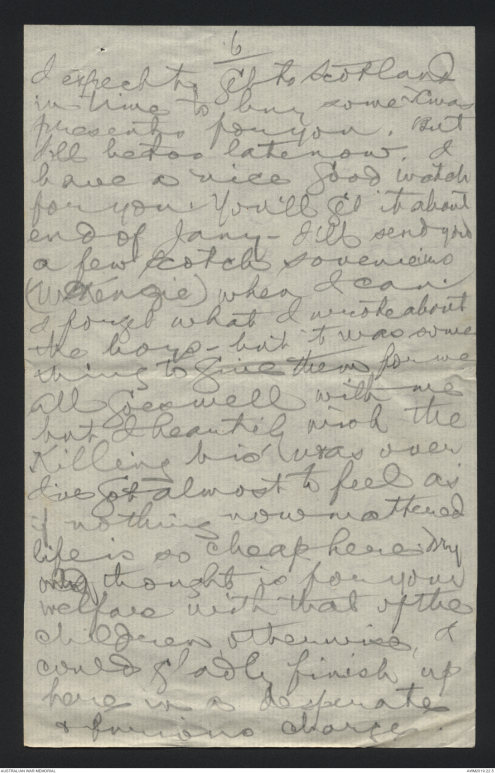 6
I expect to get to Scotland
in time to buy some Xmas
presents for you. But
I'll be too late now. I
have a nice good watch
for you. You'll get it about
end of Jany - I'll send you
a few scotch
when I can.
I forget what I wrote about
the boys - but it was some
thing to give them for me
all goes well with me
but I heartily wish the
Killing was over
I've got almost to feel as
if nothing now mattered
life is so cheap here. My
thought is for your
welfare with that of the
children, otherwise, I
could gladly finish up
here in a desperate
& furious charge.
AUSTRALIAN WAR MEMORIAL